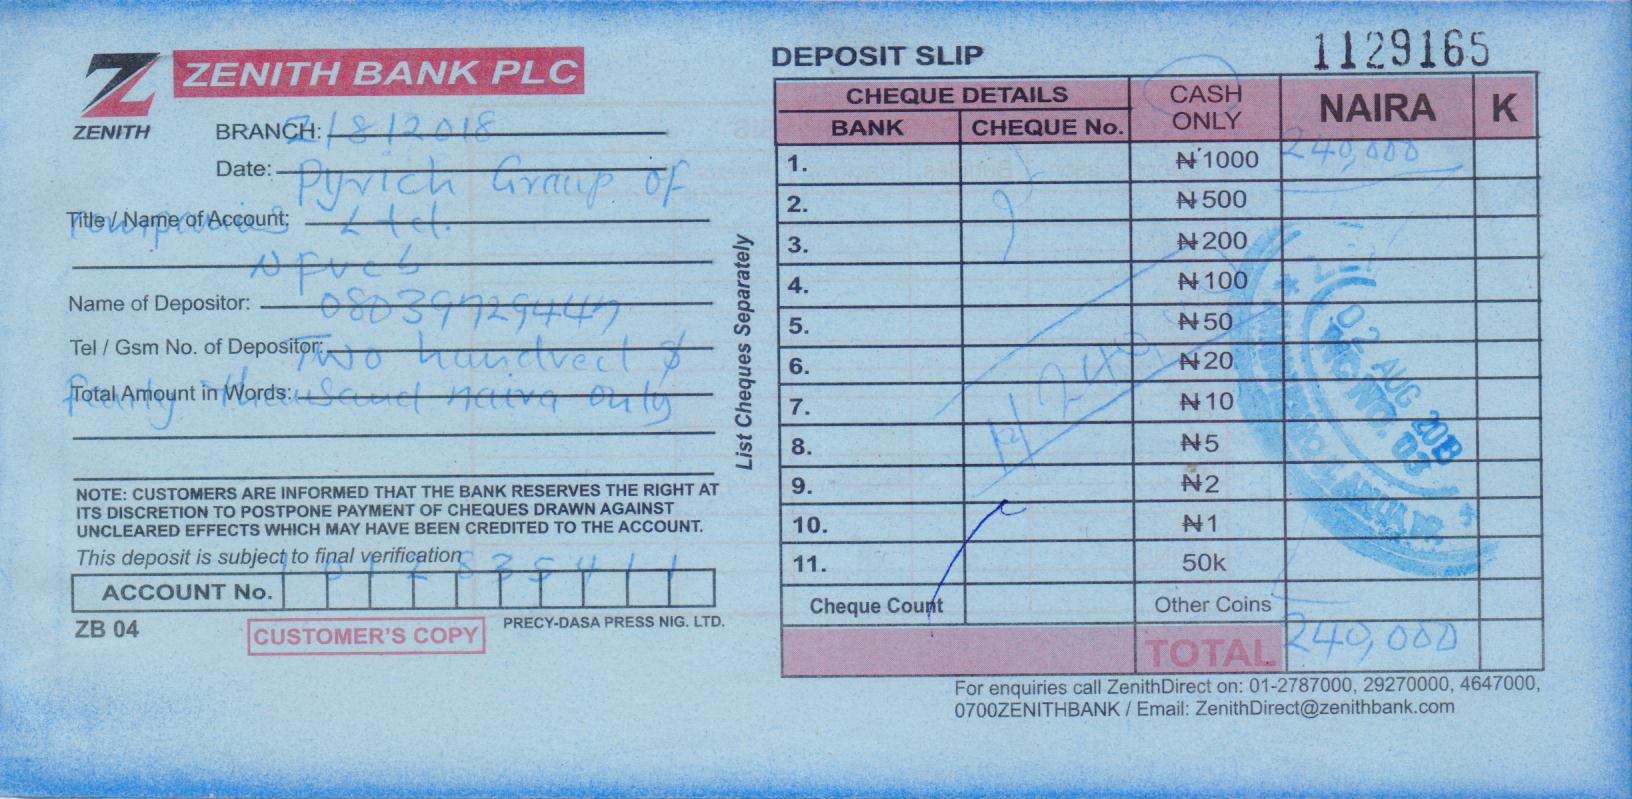 ZENITH BANK PLC
ZENITH
BRANCH:
2/8/2018
Date:
Pyrich Group of
Title / Name of Account:
Companies Ltd.
Name of Depositor:
Tel / Gsm No. of Depositor:
Two hundred &
Total Amount in Words:
fourty thousand naira only
NOTE: CUSTOMERS ARE INFORMED THAT THE BANK RESERVES THE RIGHT AT
ITS DISCRETION TO POSTPONE PAYMENT OF CHEQUES DRAWN AGAINST
UNCLEARED EFFECTS WHICH MAY HAVE BEEN CREDITED TO THE ACCOUNT.
This deposit is subject to final verification
ACCOUNT No.
ZB 04
CUSTOMER'S COPY
PRECY-DASA PRESS NIG. LTD.
DEPOSIT SLIP
1129165
CHEQUE DETAILS
BANK CHEQUE No. CASH ONLY NAIRA K
1. ₦1000 240,000
2. ₦500
3. ₦200
4. ₦100
5. ₦50
6. ₦20
7. ₦10
8. ₦5
9. ₦2
10. ₦1
11. 50k
Cheque Count Other Coins
TOTAL 240,000
List Cheques Separately
02 AUG 2018
For enquiries call ZenithDirect on: 01-2787000, 29270000, 4647000,
0700ZENITHBANK / Email: ZenithDirect@zenithbank.com